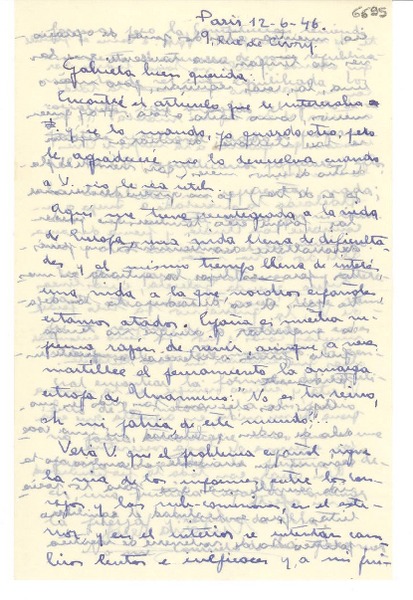 6695
Paris 12-6-46
9, Rue de Civry
Gabriela bien querida:
Encontré el artículo que le interesaba
y se lo mando, yo guardo otro, pero
le agradeceré me lo devuelva cuando
a V. no le sea util.
Aquí me tiene reintegrada a la vida
de Europa, una vida llena de dificulta-
des y al mismo tiempo llena de interés,
una vida a la que nosotros españoles
estamos atados. España es nuestra su-
prema razón de vivir, aunque a veces
martillee el pensamiento la amarga
estrofa de Unamuno: "No es tu reino,
oh mi patria de este mundo!..."
Verá V. que el problema español sigue
la vía de los informes, entre los con-
sejos y las sub-comisiones, en el exte-
rior y en el interior se intentan cam-
bios lentos e ineficaces y, a mi jui-